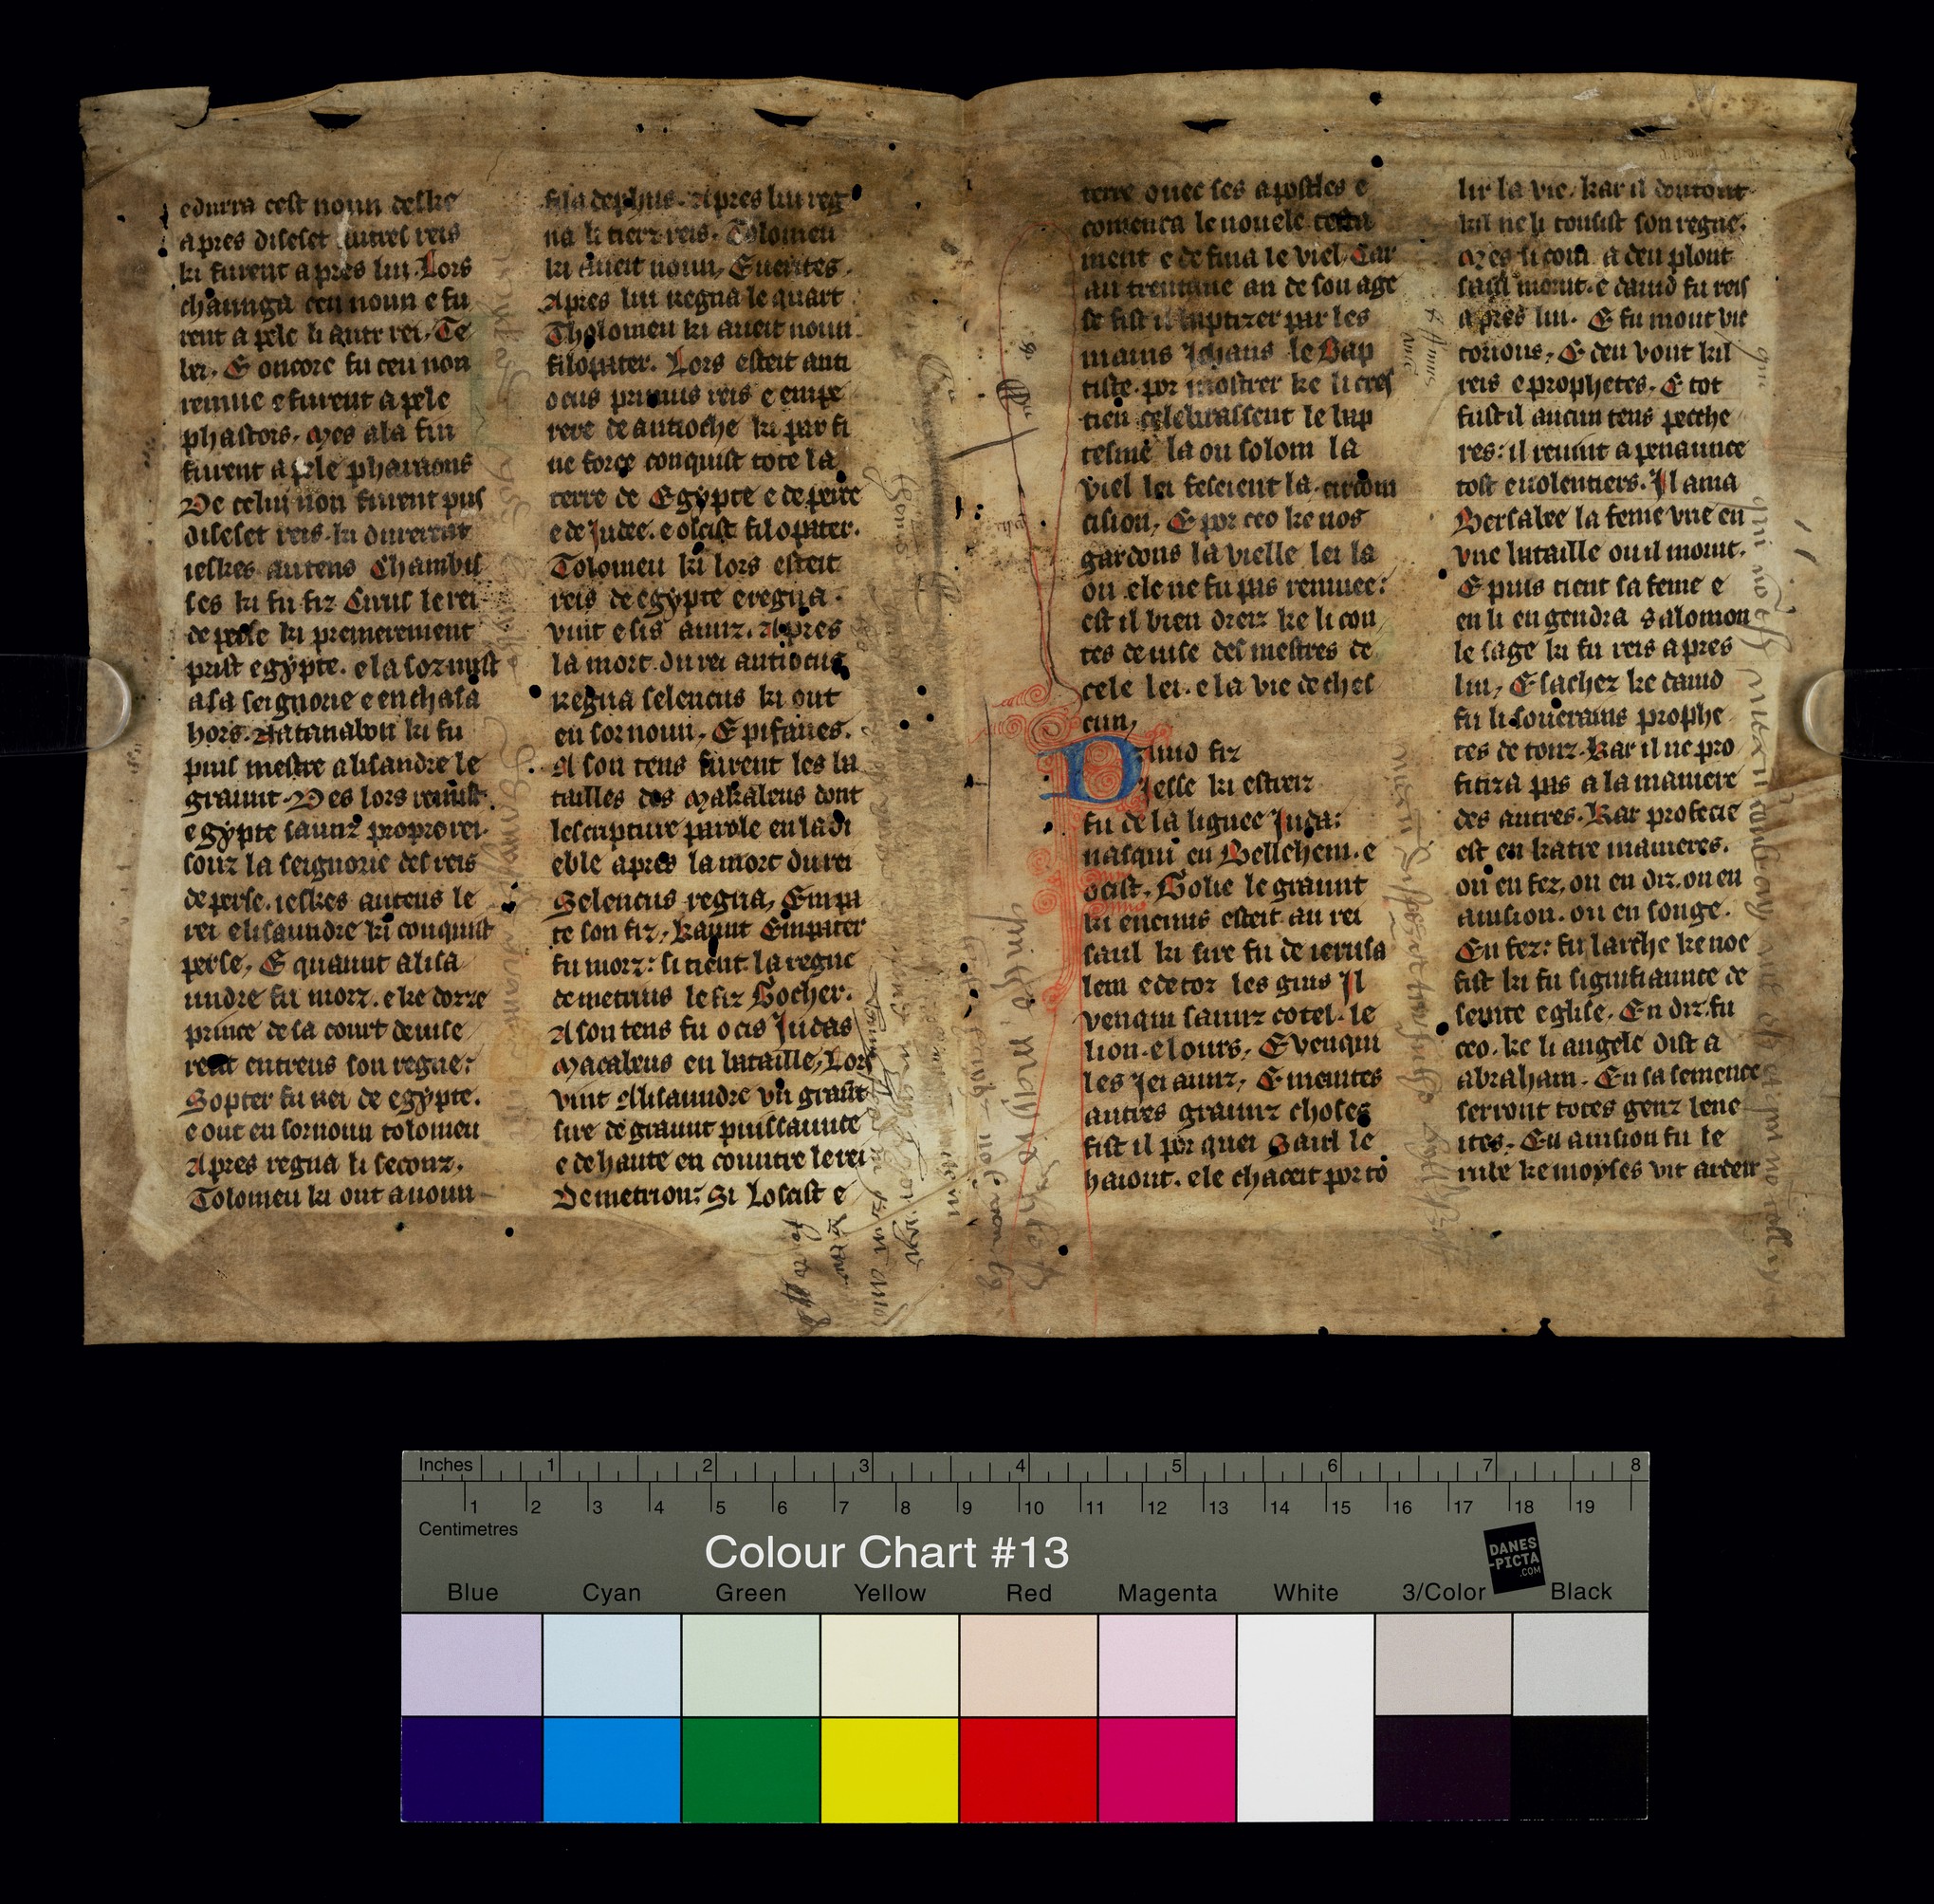 edurra cest noun deske
apres diseset autres reis
ki furent apres lui. Lors
chaunga ceu noun e fu
rent apele li autr rei. Te
bei. E oncore fu ceu non
remue e furent apele
phastors. Mes ala fin
furent apele pharaons
De celui non furent pus
diseset reis. ki durerent
ieskes autens Chambis
ses ki fu fiz Cirus le rei
de perse ki premerement
prist egypte. e la sozmist
a sa seignorie e enchasa
hors. Natanabon ki fu
puis mestre alisandre le
graunt. Des lors remist
egypte saunz propre rei.
souz la seignorie des reis
de perse. ieskes autens le
rei elisaundre ki conquist
perse. E quaunt alisa
undre fu morz. e ke dozze
prince de sa court deuise
rent entreus son regne:
Sopter fu rei de egypte.
e out en sornoun tolomeu
Apres regna li seconz.
Tolomeu ki out anoun
filadephus. Apres lui reg
na li tierz reis. Tolomeu
ki aueit noun. Euerites.
Apres lui regna le quart
Tholomeu ki aueit noun
filopater. Lors esteit anti
ocus primus reis e empe
rere de antioche ki par fi
ne force conquist tote la
terre de Egypte e de perce
e de Judee. e oscist filopater.
Tolomeu ki lors esteit
reis de egypte e regna.
vint e sis aunz. Apres
la mort du rei antiocus
regna seleucus ki out
en sornoun. Epifanes.
A son tens furent les ba
tailles des Makabeus dont
lescripture parole en la bi
ble apres la mort du rei
Seleucus regna. Eupa
te son fiz. Kaunt Eupater
fu morz: si tient la regne
demetrius le fiz Gocher.
A son tens fu ocis Judas
Macabeus en bataille. Lors
vint Alisaundre un graunt
sire de graunt puissaunce
e de haute en countre le rei
Demetrion: Si loscist e
terre ouec ses apostles e
comenca le nouele testa
ment e defina le viel. Car
au trentime an de son age
se fist il baptizer par les
mains Jehans le Bap
tiste. por mostrer ke li cres
tien celebrassent le bap
tesme la ou solom la
viel lei feseient la circom
cision. E por ceo ke nos
gardons la vielle lei la
ou ele ne fu pas remuee:
est il bien dreiz ke li con
tes deuise des mestres de
cele lei. e la vie de ches
cun.
Dauid fiz
Jesse ki estreiz
fu de la lignee Juda:
nasqui en Bethleem. e
ocist. Golie le graunt
ki enemis esteit au rei
saul ki sire fu de ierusa
lem e de toz les gius Il
venqui saunz cotel. le
lion. e lours. E venqui
les Jeiaunz. E meintes
autres graunz choses
fist il por quei Saul le
haiout. e le chaceit por to
lir la vie. kar il doutout
kil ne li tousist son regne.
Mes si com a deu plout
saul morut. e dauid fu reis
apres lui. E fu mout vic
torious. E deu vout kil
reis e prophetes. E tot
fust il aucun tens pecche
res: il reuint a penaunce
tost e uolentiers. Il ama
Bersabee la feme vrie en
vne bataille ou il morut.
E puis tient sa feme e
en li engendra salomon
le sage ki fu reis apres
lui. E sachez ke dauid
fu li souerains prophe
tes de touz. Kar il ne pro
fetiza pas a la maniere
des autres. Kar profecie
est en katre manieres.
ou en fez. ou en diz. ou en
auision. ou en songe.
En fez: fu larche ke noe
fist ki fu signifiaunce de
seinte eglise. En diz. fu
ceo. ke li angele dist a
abraham. En ta semence
serront totes genz bene
ites. En auision fu le
rube ke moyses vit ardeir
Inches 1 2 3 4 5 6 7 8
1 2 3 4 5 6 7 8 9 10 11 12 13 14 15 16 17 18 19
Centimetres
Colour Chart #13
DANES
-PICTA
.COM
Blue Cyan Green Yellow Red Magenta White 3/Color Black